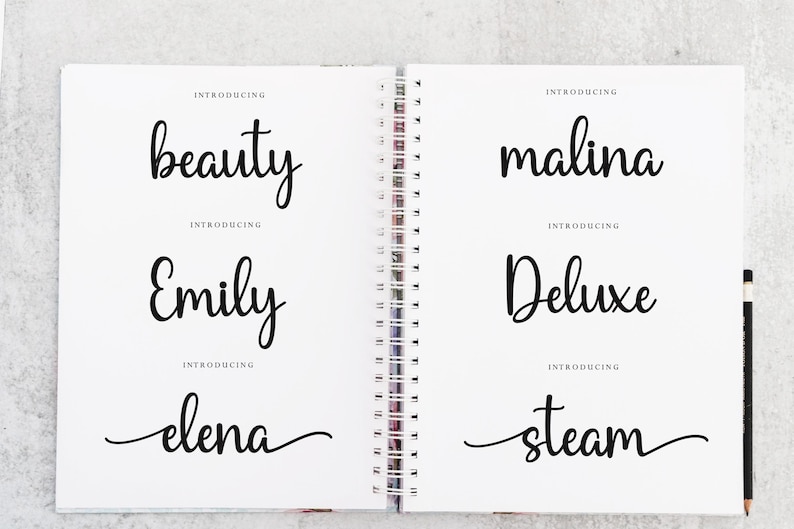 INTRODUCING
beauty
INTRODUCING
Emily
INTRODUCING
elena
INTRODUCING
malina
INTRODUCING
Deluxe
INTRODUCING
steam